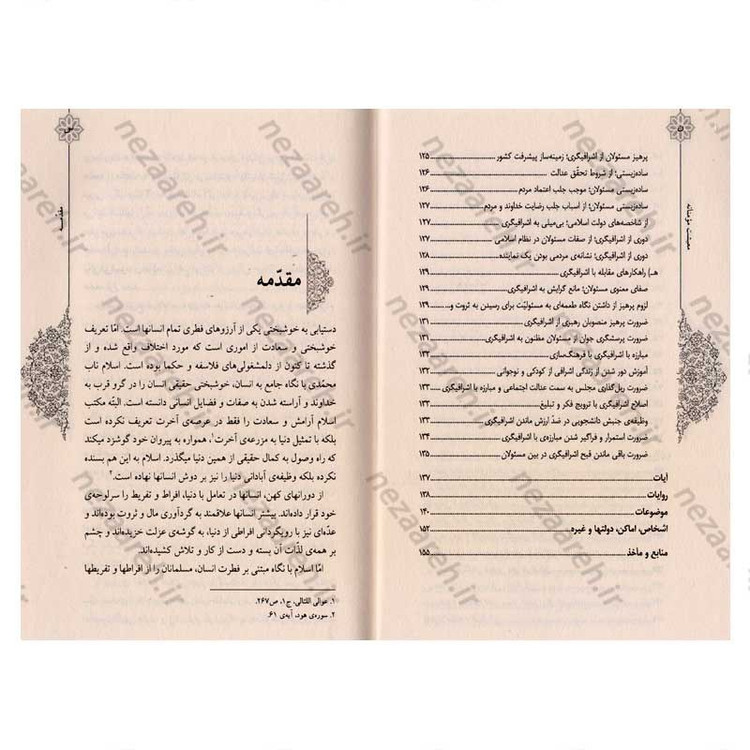 معیشت مؤمنانه
پرهیز مسئولان از اشرافیگری؛ زمینه‌ساز پیشرفت کشور ........ ۱۲۵
ساده‌زیستی؛ از شروط تحقّق عدالت ........ ۱۲۶
ساده‌زیستی مسئولان؛ موجب جلب اعتماد مردم ........ ۱۲۶
ساده‌زیستی مسئولان؛ از اسباب جلب رضایت خداوند و مردم ........ ۱۲۷
از شاخصه‌های دولت اسلامی؛ بی‌میلی به اشرافیگری ........ ۱۲۷
دوری از اشرافیگری؛ از صفات مسئولان در نظام اسلامی ........ ۱۲۷
دوری از اشرافیگری؛ نشانه‌ی مردمی بودن یک نماینده ........ ۱۲۸
هـ) راهکارهای مقابله با اشرافیگری ........ ۱۲۹
صفای معنوی مسئولان؛ مانع گرایش به اشرافیگری ........ ۱۲۹
لزوم پرهیز از داشتن نگاه طعمه‌ای به مسئولیّت برای رسیدن به ثروت و... ۱۲۹
ضرورت پرهیز منصوبان رهبری از اشرافیگری ........ ۱۳۱
ضرورت پرسشگری جوان از مسئولان مظنون به اشرافیگری ........ ۱۳۱
مبارزه با اشرافیگری با فرهنگ‌سازی ........ ۱۳۲
آموزش دور شدن از زندگی اشرافی از کودکی و نوجوانی ........ ۱۳۲
ضرورت ریل‌گذاری مجلس به سمت عدالت اجتماعی و مبارزه با اشرافیگری .. ۱۳۳
اصلاح اشرافیگری با ترویج فکر و تبلیغ ........ ۱۳۳
وظیفه‌ی جنبش دانشجویی در ضدّ ارزش ماندن اشرافیگری ........ ۱۳۳
ضرورت استمرار و فراگیر شدن مبارزه‌ی با اشرافیگری ........ ۱۳۴
ضرورت باقی ماندن قبح اشرافیگری در بین مسئولان ........ ۱۳۵
آیات ........ ۱۳۷
روایات ........ ۱۳۸
موضوعات ........ ۱۴۰
اشخاص، اماکن، دولتها و غیره ........ ۱۵۲
منابع و مآخذ ........ ۱۵۵
مقدّمـه
مقدّمه
دستیابی به خوشبختی یکی از آرزوهای فطری تمام انسانها است. امّا تعریف
خوشبختی و سعادت از اموری است که مورد اختلاف واقع شده و از
گذشته تا کنون از دلمشغولی‌های فلاسفه و حکما بوده است. اسلام ناب
محمّدی با نگاه جامع به انسان، خوشبختی حقیقی انسان را در گرو قرب به
خداوند و آراسته شدن به صفات و فضایل انسانی دانسته است. البتّه مکتب
اسلام آرامش و سعادت را فقط در عرصه‌ی آخرت تعریف نکرده است
بلکه با تمثیل دنیا به مزرعه‌ی آخرت۱، همواره به پیروان خود گوشزد میکند
که راه وصول به کمال حقیقی از همین دنیا میگذرد. اسلام به این هم بسنده
نکرده بلکه وظیفه‌ی آبادانی دنیا را نیز بر دوش انسانها نهاده است.۲
از دورانهای کهن، انسانها در تعامل با دنیا، افراط و تفریط را سرلوحه‌ی
خود قرار داده‌اند. بیشتر انسانها علاقمند به گردآوری مال و ثروت بوده‌اند و
عدّه‌ای نیز با رویگردانی افراطی از دنیا، به گوشه‌ی عزلت خزیده‌اند و چشم
بر همه‌ی لذّات آن بسته و دست از کار و تلاش کشیده‌اند.
امّا اسلام با نگاه مبتنی بر فطرت انسان، مسلمانان را از افراطها و تفریطها
۱. عوالی اللئالی، ج۱، ص۲۶۷.
۲. سوره‌ی هود، آیه‌ی ۶۱.
nezaareh.ir
nezaareh.ir
nezaareh.ir
nezaareh.ir
nezaareh.ir
nezaareh.ir
nezaareh.ir
nezaareh.ir